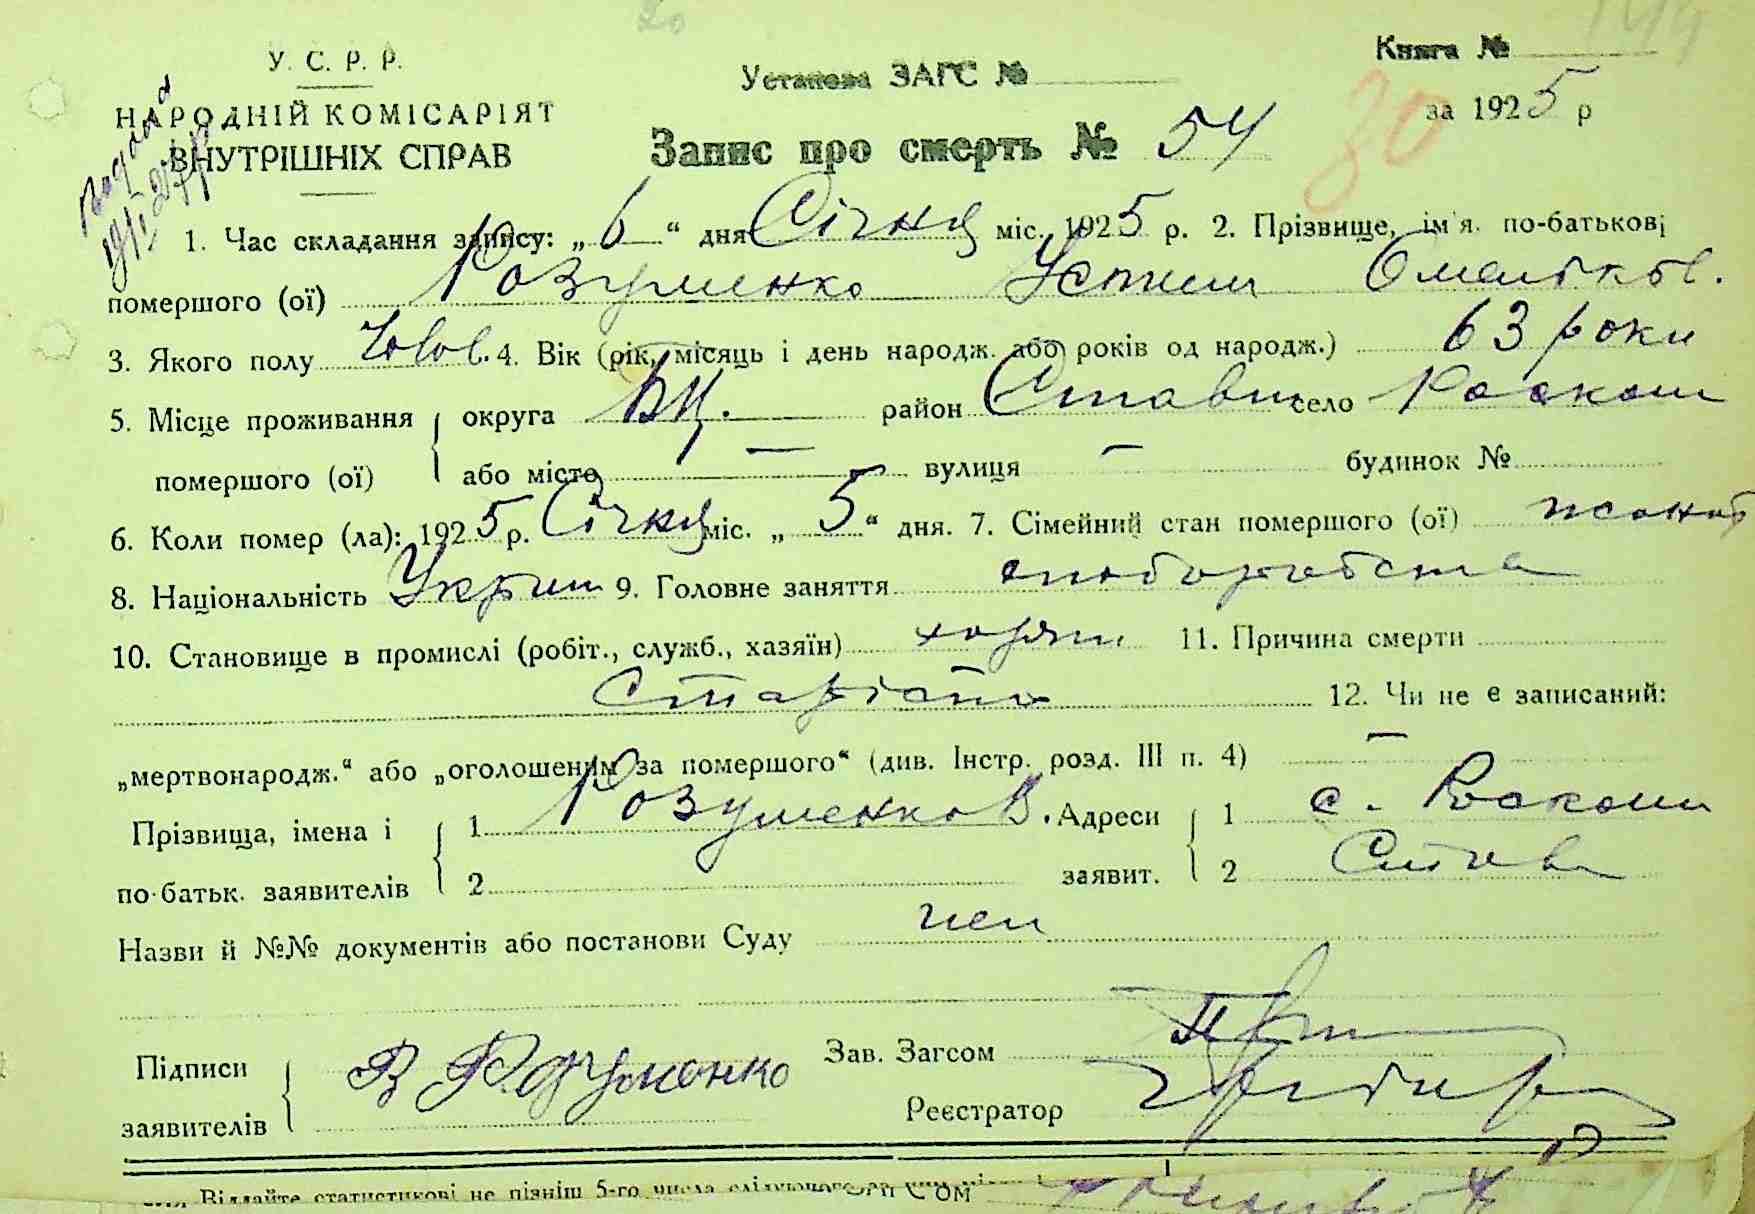 У. С. Р. Р.
НАРОДНІЙ КОМІСАРІЯТ
ВНУТРІШНІХ СПРАВ
Установа ЗАГС №
Книга №
за 1925 р
30
Запис про смерть № 54
1. Час складання запису: „6“ дня Січня міс. 1925 р. 2. Прізвище, ім'я. по-батькові
помершого (ої) Розуменко Устим Омельков.
3. Якого полу чолов. 4. Вік (рік, місяць і день народж. або років од народж.) 63 роки
5. Місце проживання округа БЦ. район Ставищ село Роскош
помершого (ої) або місто — вулиця — будинок №
6. Коли помер (ла): 1925 р. Січня міс. „5“ дня. 7. Сімейний стан помершого (ої) жонат
8. Національність Украин 9. Головне заняття хлиборобство
10. Становище в промислі (робіт., служб., хазяїн) хозяин 11. Причина смерти
старість 12. Чи не є записаний:
„мертвонародж.“ або „оголошеним за помершого“ (див. Інстр. розд. III п. 4) —
Прізвища, імена і 1 Розуменко В. Адреси 1 с. Роскош
по-батьк. заявителів 2 заявит. 2 Ставищ
Назви й №№ документів або постанови Суду
Підписи В Розуменко Зав. Загсом
заявителів Реєстратор
Віддайте статистикові не пізніш 5-го числа слідуючого